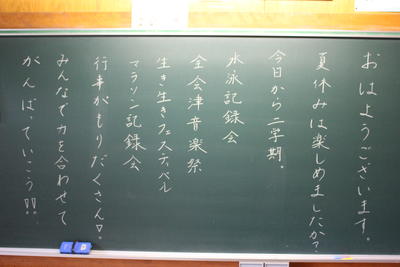 おはようございます。
夏休みは楽しめましたか?
今日から二学期。
水泳記録会
全会津音楽祭
生き生きフェスティバル
マラソン記録会
行事がもりだくさん!
みんなで力を合わせて
がんばっていこう!!